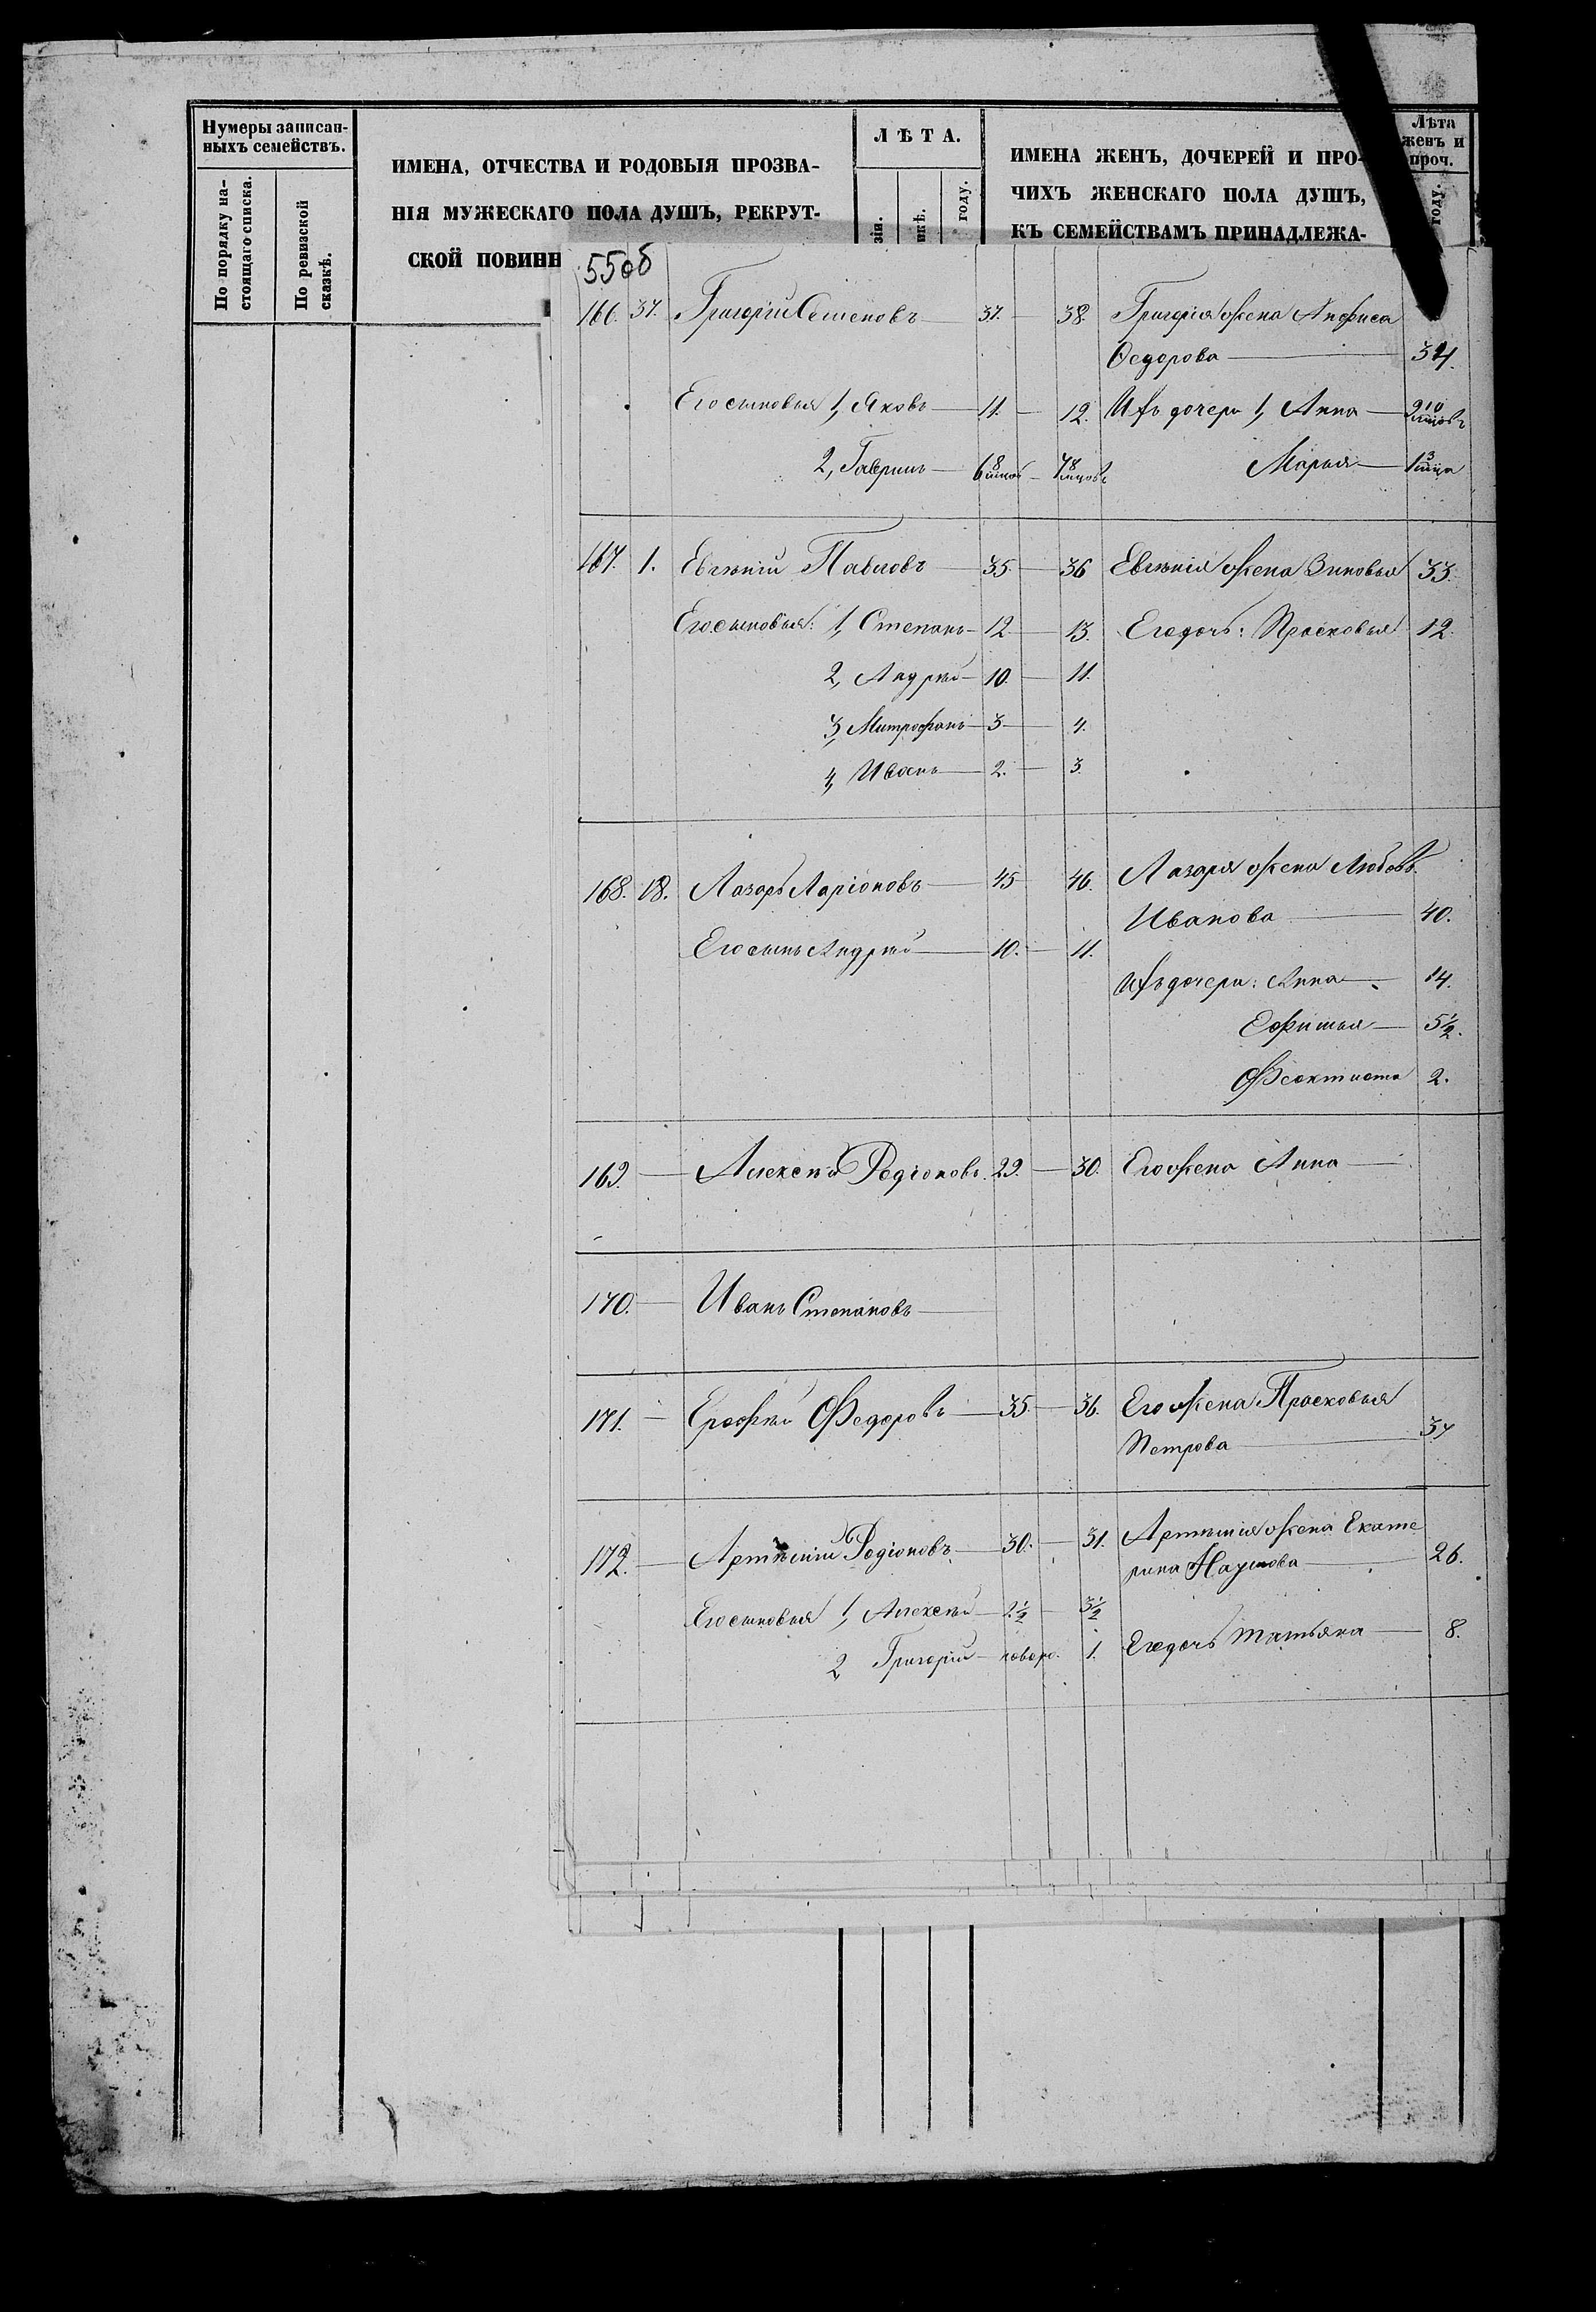 Нумеры записан-
ныхъ семействъ.
По порядку на-
стоящаго списка.
По ревизской
сказкѣ.
ИМЕНА, ОТЧЕСТВА И РОДОВЫЯ ПРОЗВА-
НІЯ МУЖЕСКАГО ПОЛА ДУШЪ, РЕКРУТ-
СКОЙ ПОВИНН
ЛѢТА.
зіи.
икѣ.
году.
ИМЕНА ЖЕНЪ, ДОЧЕРЕЙ И ПРО-
ЧИХЪ ЖЕНСКАГО ПОЛА ДУШЪ,
КЪ СЕМЕЙСТВАМЪ ПРИНАДЛЕЖА-
Лѣта
женъ и
проч.
году.
55об
166. 37. Григорій Семеновъ 37. 38. Григорія жена Анфиса
Ѳедорова 34.
Его сыновья 1, Яковъ 11. 12. Ихъ дочери 1, Анна 9 10 мцовъ
2, Гаврилъ 6 8 мцов 7 8 мцовъ Марья 1 3 мца
167. 1. Евгеній Павловъ 35. 36 Евгенія жена Зиновья 33.
Его сыновья: 1, Степанъ 12 13. Его дочь: Прасковья 12.
2, Андрей 10. 11.
3, Митрофанъ 3 4.
4, Иванъ 2. 3.
168. 18. Лазарь Ларіоновъ 45 46. Лазаря жена Любовь
Иванова 40.
Его сынъ Андрей 10. 11.
Ихъ дочери: Анна 14.
Ефимья 5½.
Феоктиста 2.
169. Алексей Родіоновъ. 29. 30. Его жена Анна
170. Иванъ Степановъ
171. Ерофей Федоровъ 35. 36. Его жена Прасковья
Петрова 34
172. Артемій Родіоновъ 30. 31. Артемія жена Екате
рина Наумова 26.
Его сыновья 1, Алексей 2½ 3½
2 Григорій новоро. 1. Его дочь Татьяна 8.